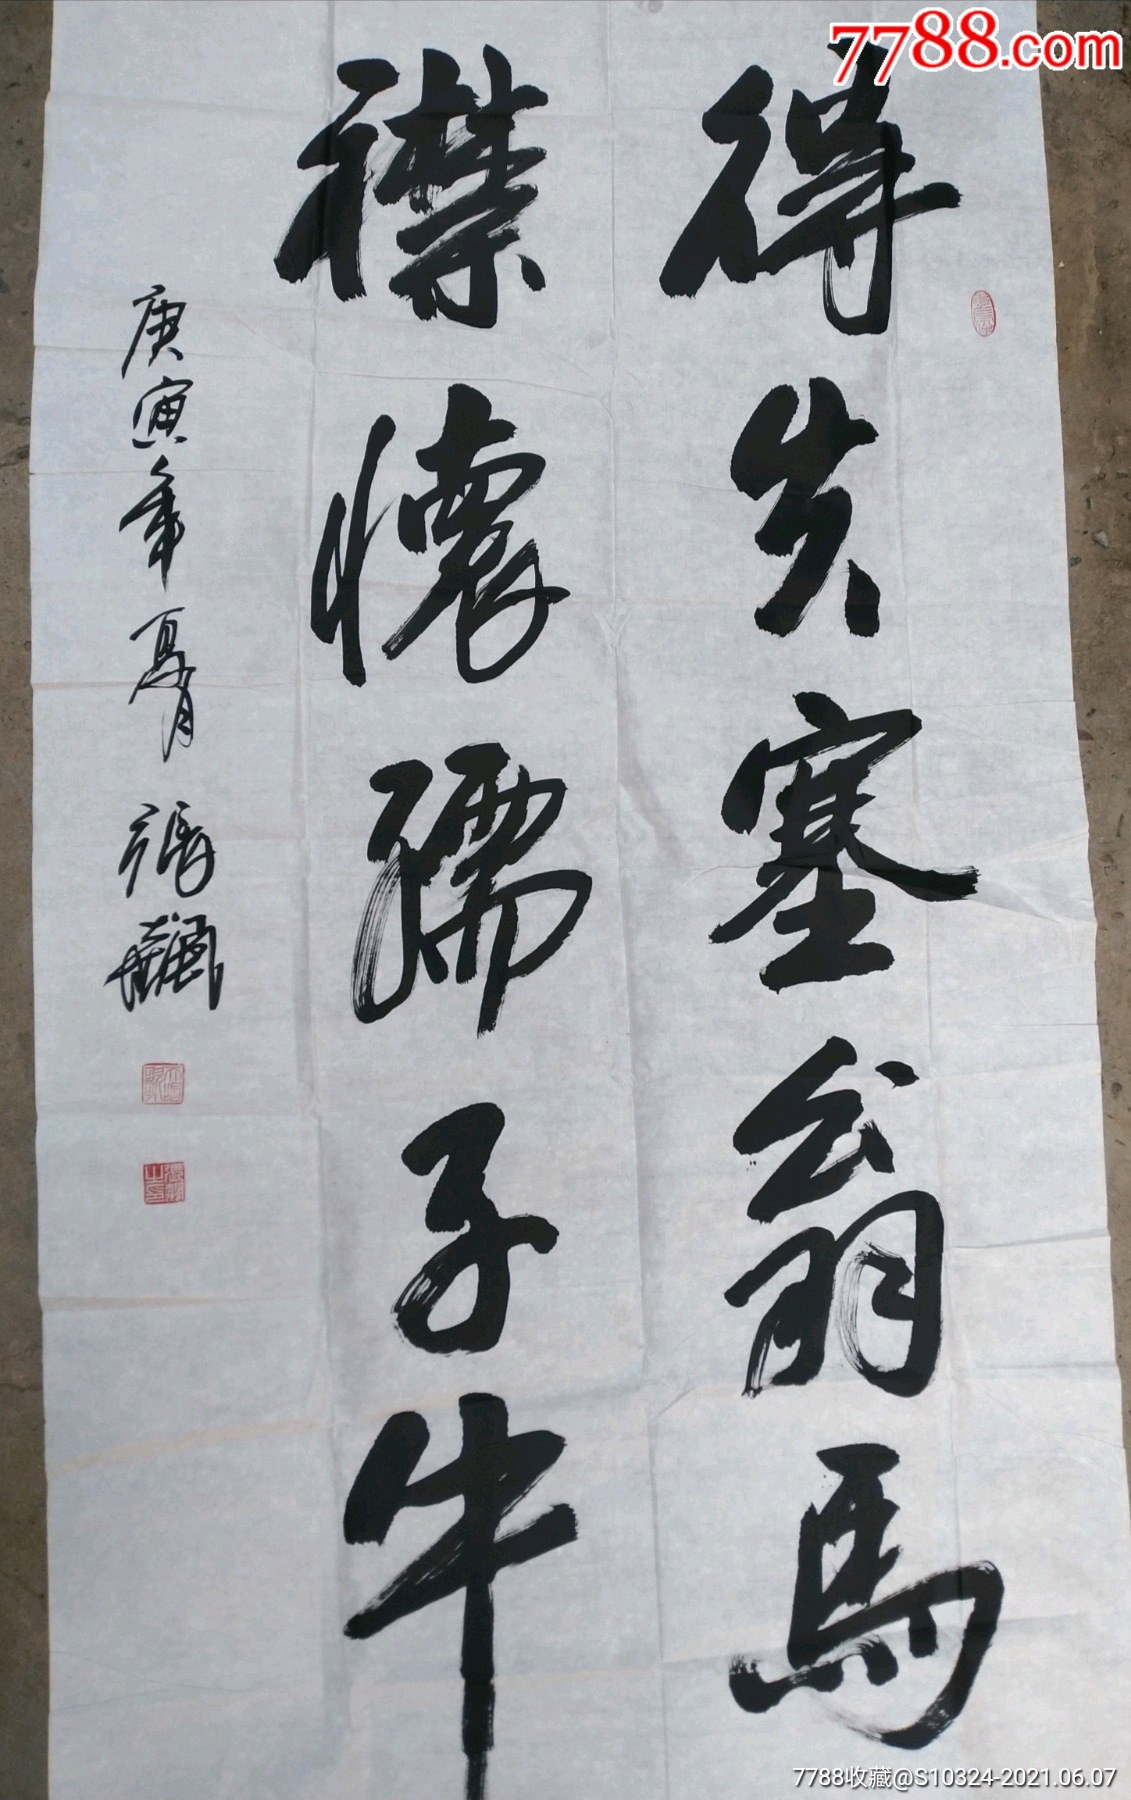 7788.com
得失塞翁馬
襟懷孺子牛
庚寅年夏月 張飆
7788收藏@S10324-2021.06.07